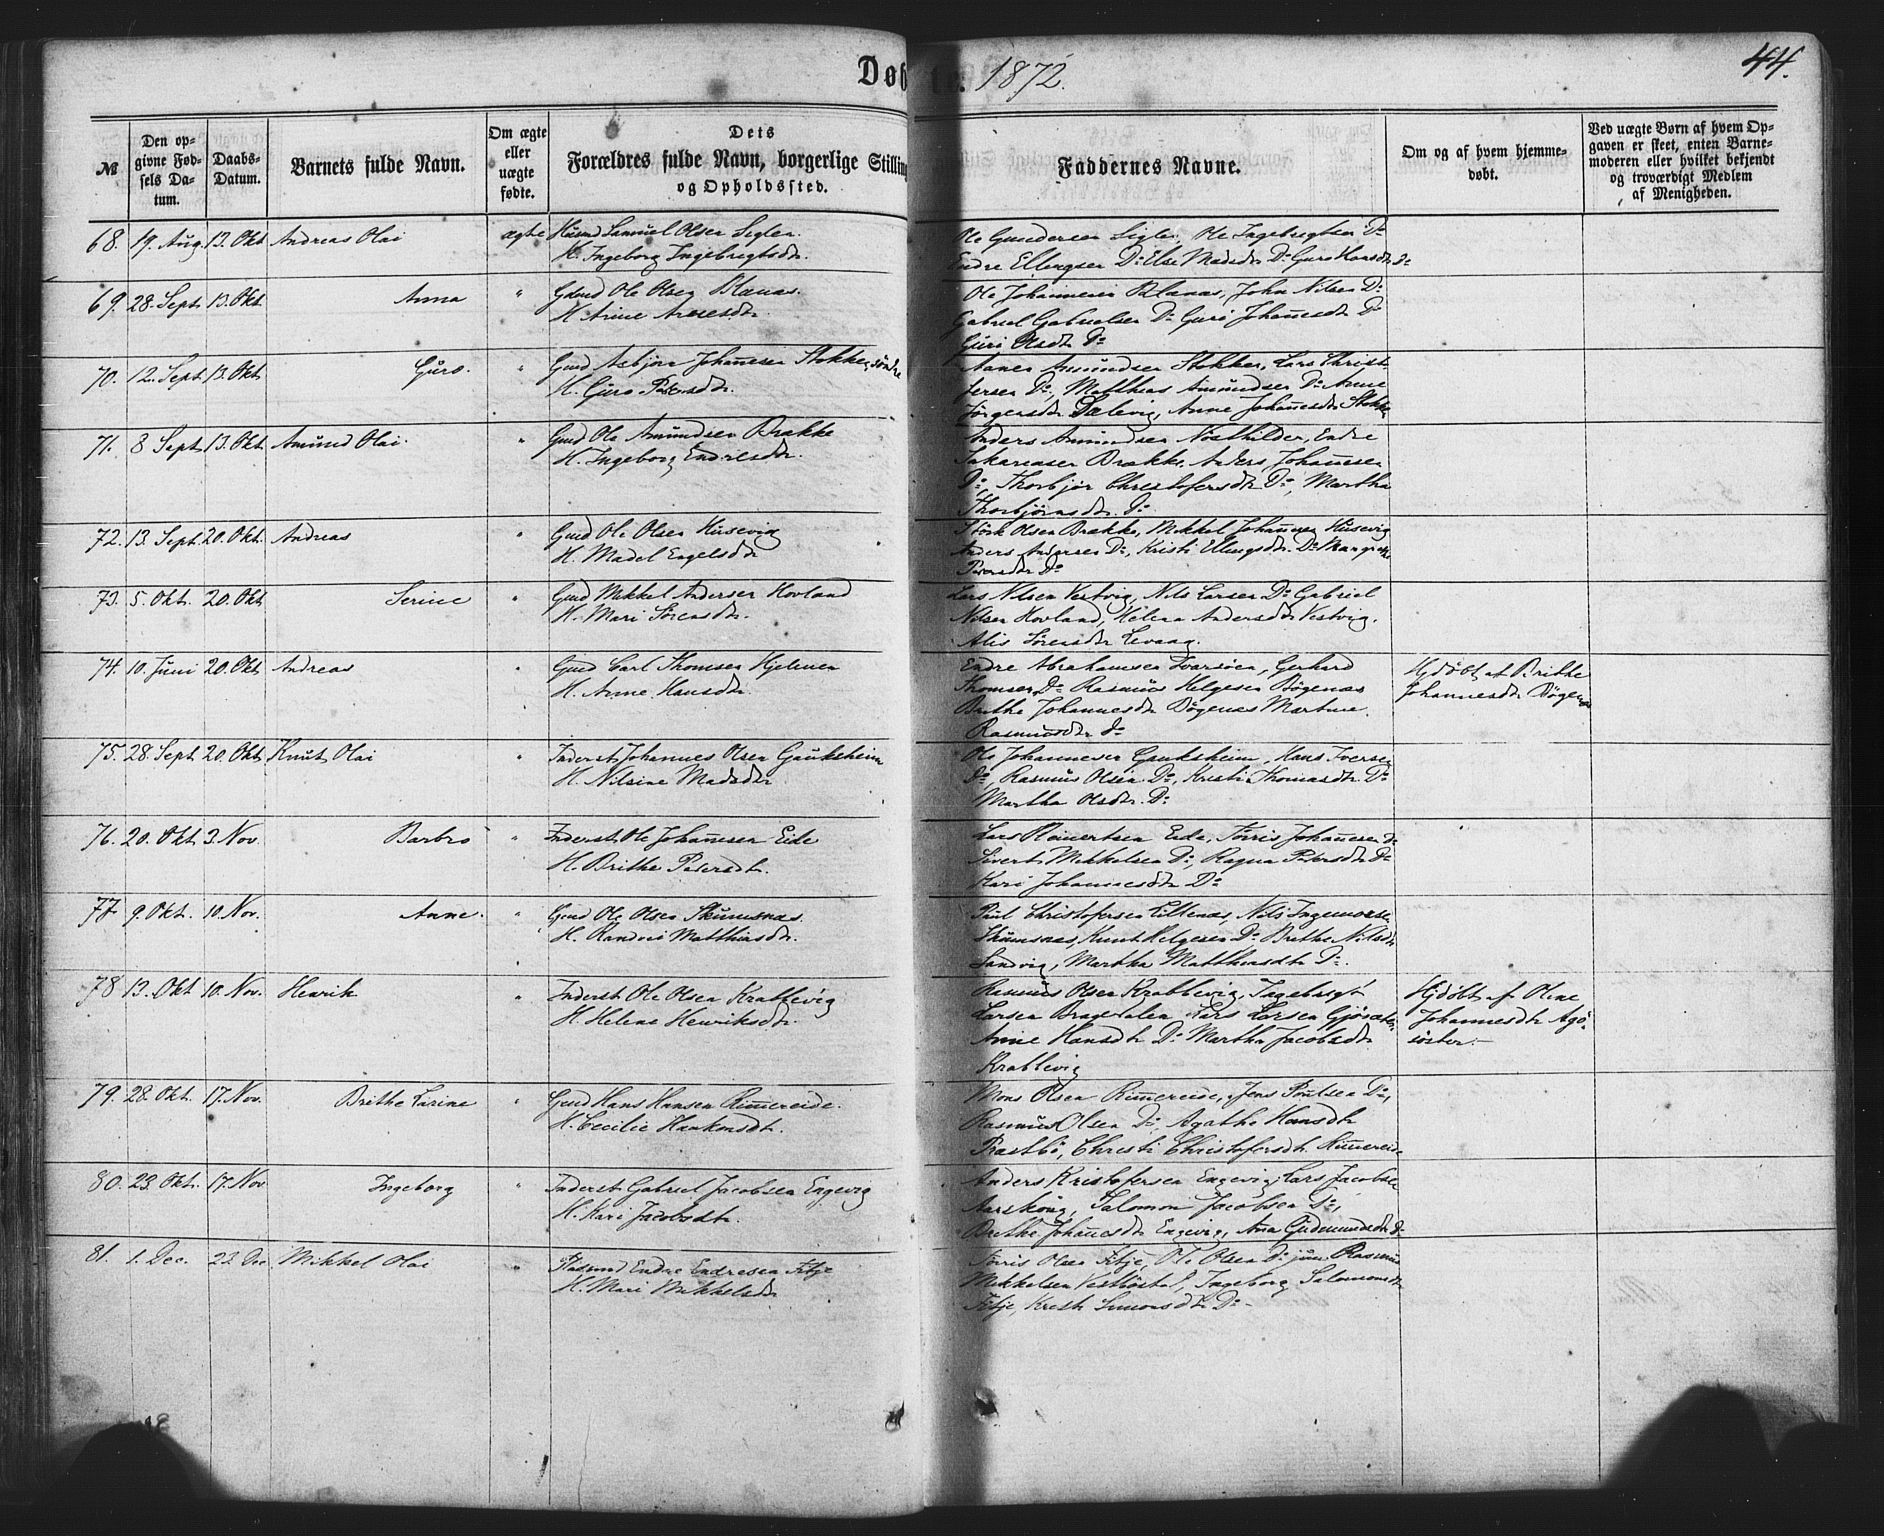 Døbte. 1872. 44.
№ Den opgivne Fødsels Datum. Daabs-Datum. Barnets fulde Navn. Om ægte eller uægte fødte. Dets Forældres fulde Navn, borgerlige Stilling og Opholdssted. Faddernes Navne. Om og af hvem hjemmedøbt. Ved uægte Børn af hvem Opgaven er skeet, enten Barnemoderen eller hvilket bekjendt og troværdigt Medlem af Menigheden.
68. 19. Aug. 13. Okt Andreas Olai ægte Samuel Olsen Sigler.
H. Ingeborg Ingebrigtsdr.
Ole Gundersen Sigler, Ole Ingebrigtsen Do
Endre Ellingsen Do Else Madsdr Do Guro Hansdr Do
69. 28. Sept. 13. Okt. Anna " Ole Olsen Blænæs.
H. Anne Arnesdr.
Ole Johannesen Blænæs, John Nilsen Do
Gabriel Gabrielsen Do Guri Johannesdr Do
Guri Olsdr Do
70. 12. Sept. 13. Okt. Guro. " Gmd Asbjørn Johannesen Stokken, søndre
H. Guro Petersdr.
Amundsen Stokken, Lars Christ-
Do, Matthias Amundsen Do Anne
Jørgensdr. Dalevig, Anne Johannesdr Stokke
71. 8 Sept. 13. Okt. Amund Olai. " Gmd Ole Amundsen Brække
H. Ingeborg Endresdr.
Anders Amundsen Nosthilder, Endre
Sakariasen Brække, Anders Johannesen
Do, Thorbjør Christofersdr Do, Martha
Thorbjørnsdr. Do
72. 13. Sept. 20. Okt. Andreas " Gmd Ole Olsen Husevig
H. Madel Engelsdr
Størk Olsen Brække, Mikkel Johannesen Husevig
Anders Andersen Do, Kristi Ellingsdr. Do Margrethe
Petersdr Do
73. 5. Okt. 20. Okt Serine " Gmd Mikkel Andersen Hovland
H. Mari Sørensdr.
Lars Nilsen Vestvig, Nils Larsen Do Gabriel
Nilsen Hovland, Helena Andersdr Vestvig.
Alis Sørensdr Levaag.
74. 10. Juni 20. Okt Andreas " Gmd Carl Thomsen Hjelmen
H. Anne Hansdr.
Endre Abrahamsen Ivarsøen, Gerhard
Thomsen Do Rasmus Helgesen Bøgenæs
Brithe Johannesdr Bøgenæs Martine
Rasmusdr Do
Hjdøbt af Brithe
Johannesdr Bøgenæs
75. 28. Sept 20. Okt. Knut Olai " Inderst Johannes Olsen Gauksheim
H. Nilsine Madsdr
Ole Johannesen Gauksheim, Hans Iversen
Do, Rasmus Olsen Do, Kristi Thomasdr. Do
Martha Olsdr. Do
76. 20. Okt. 3. Nov. Barbro " Inderst Ole Johannesen Eide
H. Brithe Petersdr.
Lars Reinertsen Eide, Tørris Johannesen Do
Sivert Mikkelsen Do, Ragna Petersdr Do
Kari Johannesdr Do
77 9. Okt. 10. Nov. Anne. " Gmd Ole Olsen Skumsnæs.
H. Randvei Matthiasdr.
Paul Christofersen Lillenæs, Nils Ingemorsen
Skumsnæs, Knut Helgesen Do Brithe Nilsdr
Sandvig, Martha Matthiasdr Do.
78 13. Okt 10. Nov. Henrik " Inderst Ole Olsen Krablevig
H. Helene Henriksdr.
Rasmus Olsen Krablevig, Ingebrigt
Larsen Dragedalen Lars Larsen
Anne Hansdr Do Martha Jacobsdr
Krablevig
Hjdøbt af Oline
Johannesdr Agø-
søster.
79. 28. Okt. 17. Nov. Brithe Larine " Gmd Hans Hansen Rimmereide.
H. Cecilie Haakonsdr.
Mons Olsen Rimmereide, Jens Poulsen Do,
Rasmus Olsen Do, Agathe Hansdr
Præstbø, Christi Christofersdr Rimmereide
80. 23. Okt. 17. Nov Ingeborg " Inderst Gabriel Jacobsen Engevig
H. Kari Jacobsdr.
Anders Kristofersen Engevig, Lars Jacobsen
Aarskoug, Salomon Jacobsen Do,
Brithe Johannesdr Engevig, Ana Gudmundsdr Do
81. 1. Dec. 23 Dec Mikkel Olai " Endre Endresen Fitje
H. Mari Mikkelsdr
Tørris Olsen Fitje, Ole Olsen Do jun. Rasmus
Mikkelsen Vestbøstad, Ingeborg Salomonsdr
Fitje, Kristi Simonsdr Do